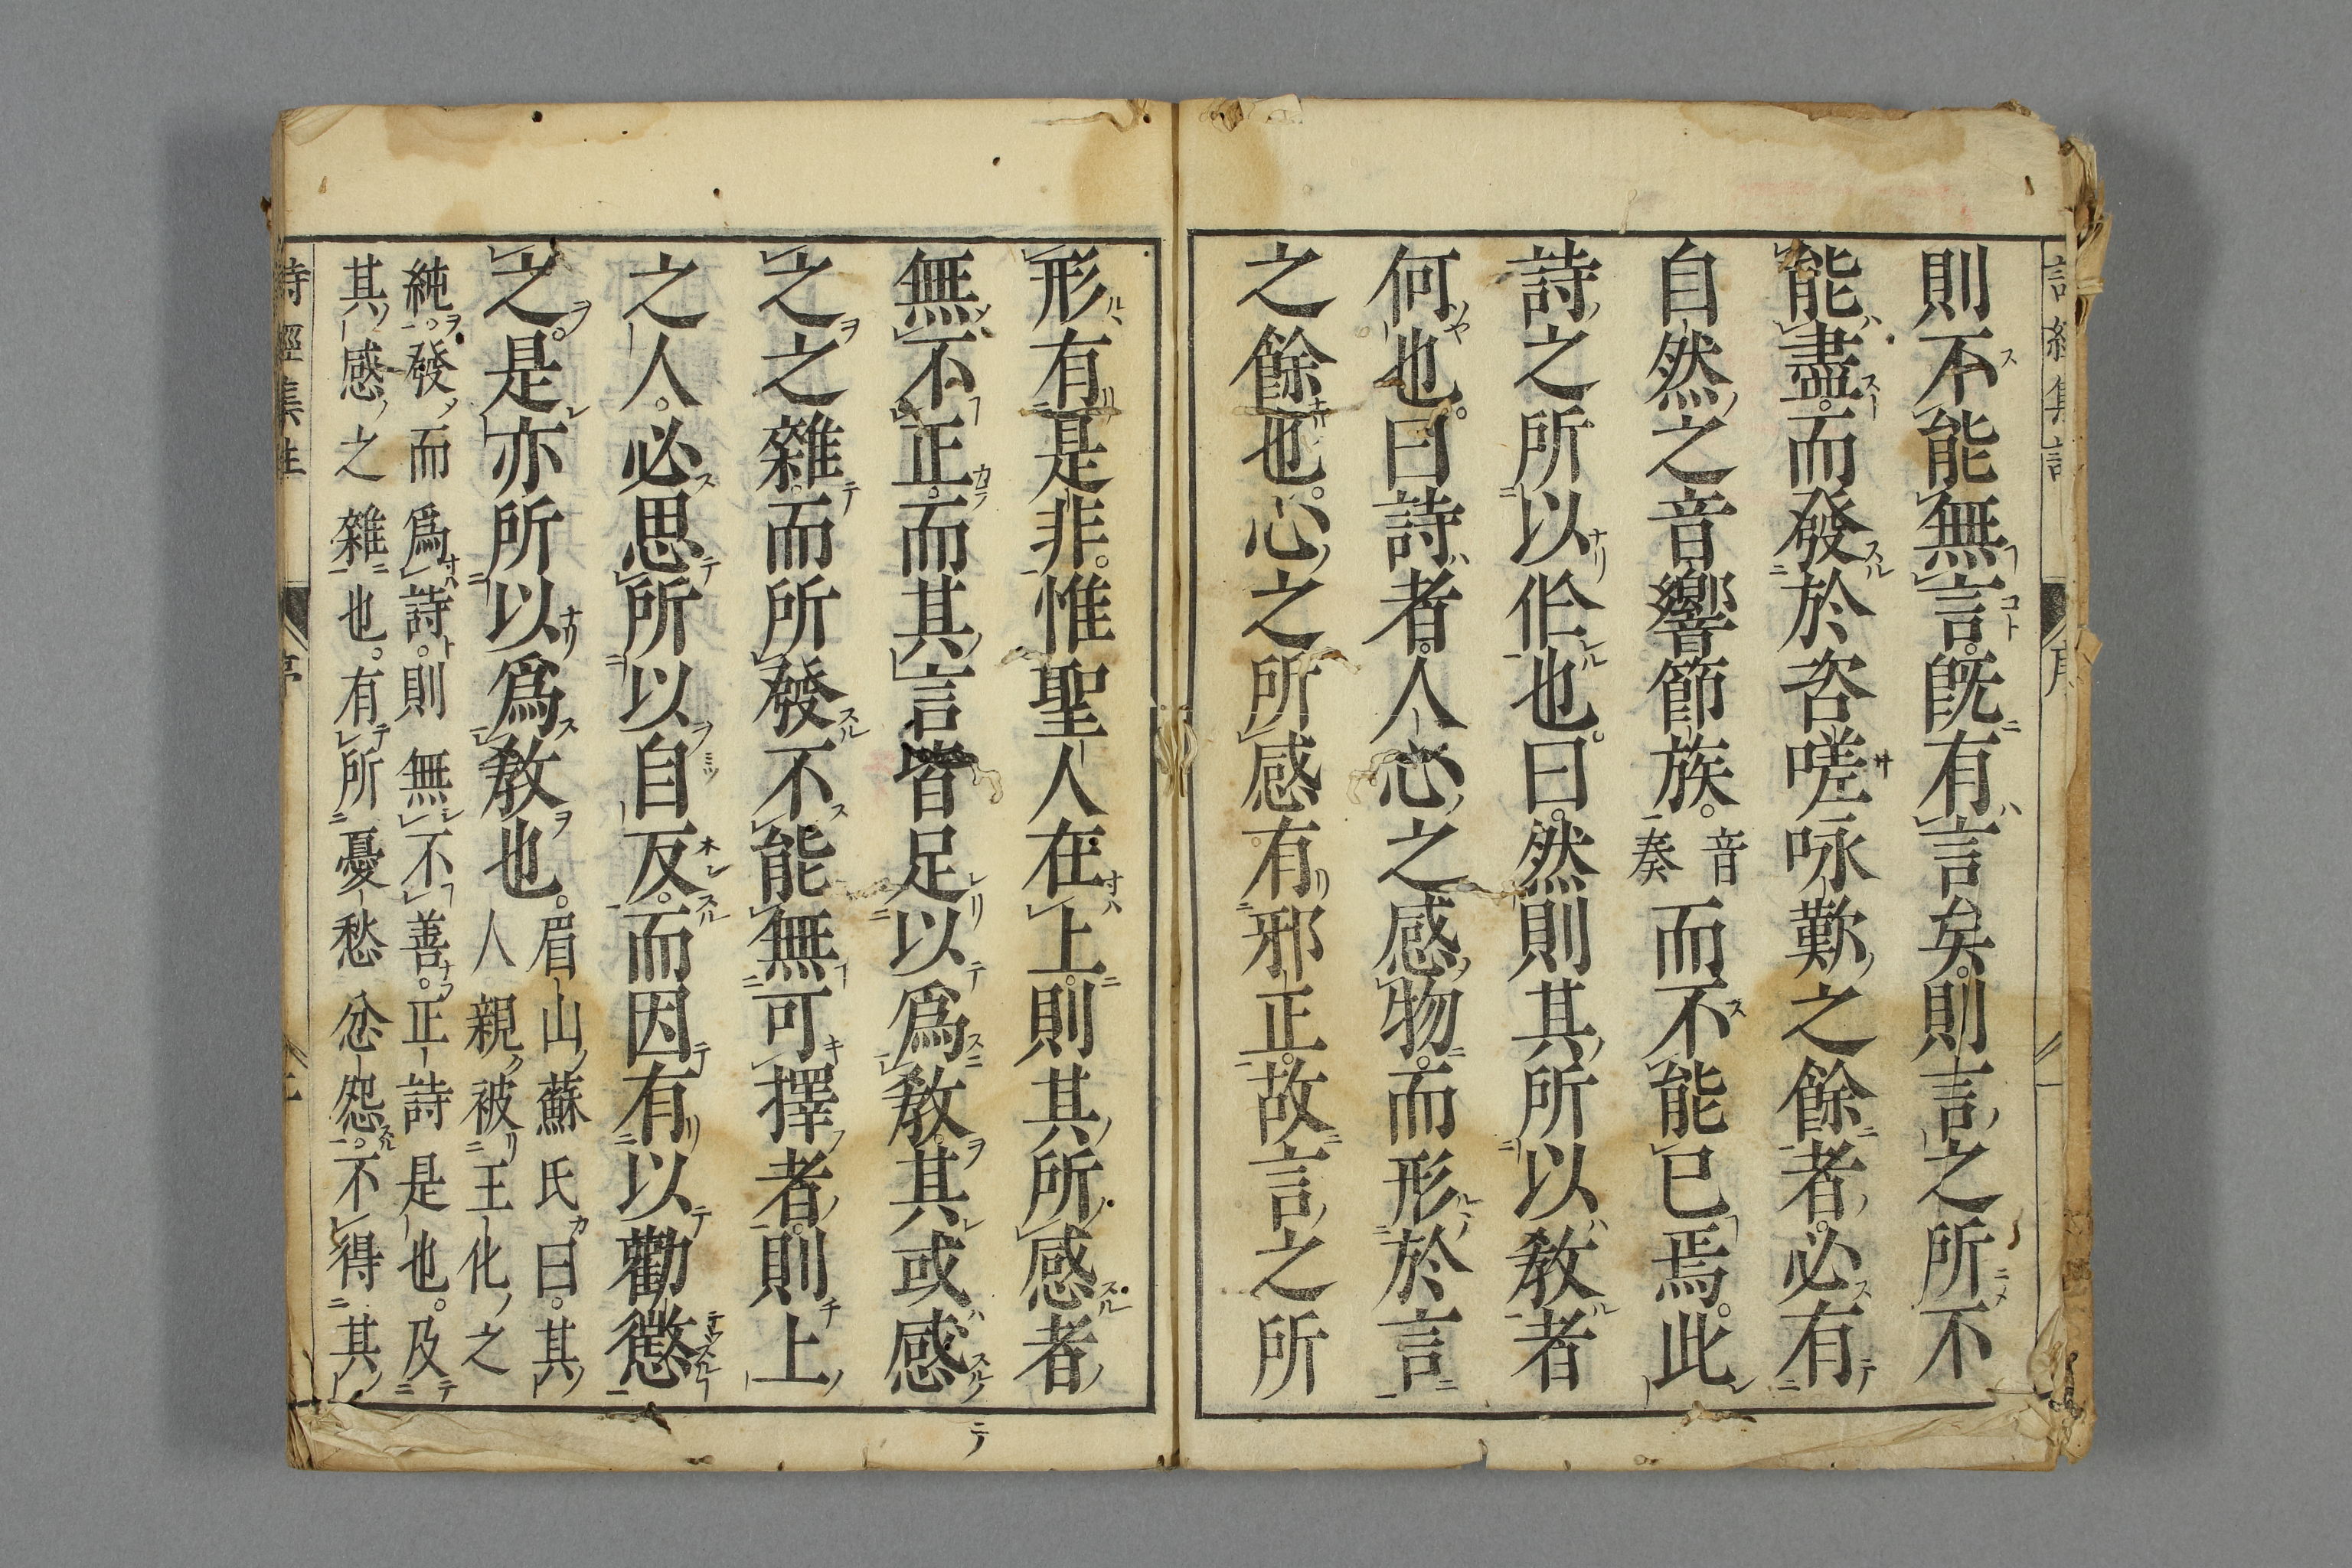 則不能無言既有言矣則言之所不
能盡而發於咨嗟咏歎之餘者必有
自然之音響節族音奏而不能已焉此
詩之所以作也曰然則其所以教者
何也曰詩者人心之感物而形於言
之餘也心之所感有邪正故言之所
形有是非惟聖人在上則其所感者
無不正而其言皆足以爲教其或感
之之雜而所發不能無可擇者則上
之人必思所以自反而因有以勸懲
之是亦所以爲教也
眉山蘇氏曰其
人親被王化之
純發而爲詩則無不善正詩是也及
其感之雜也有所憂愁忿怨不得其
詩經集註
序